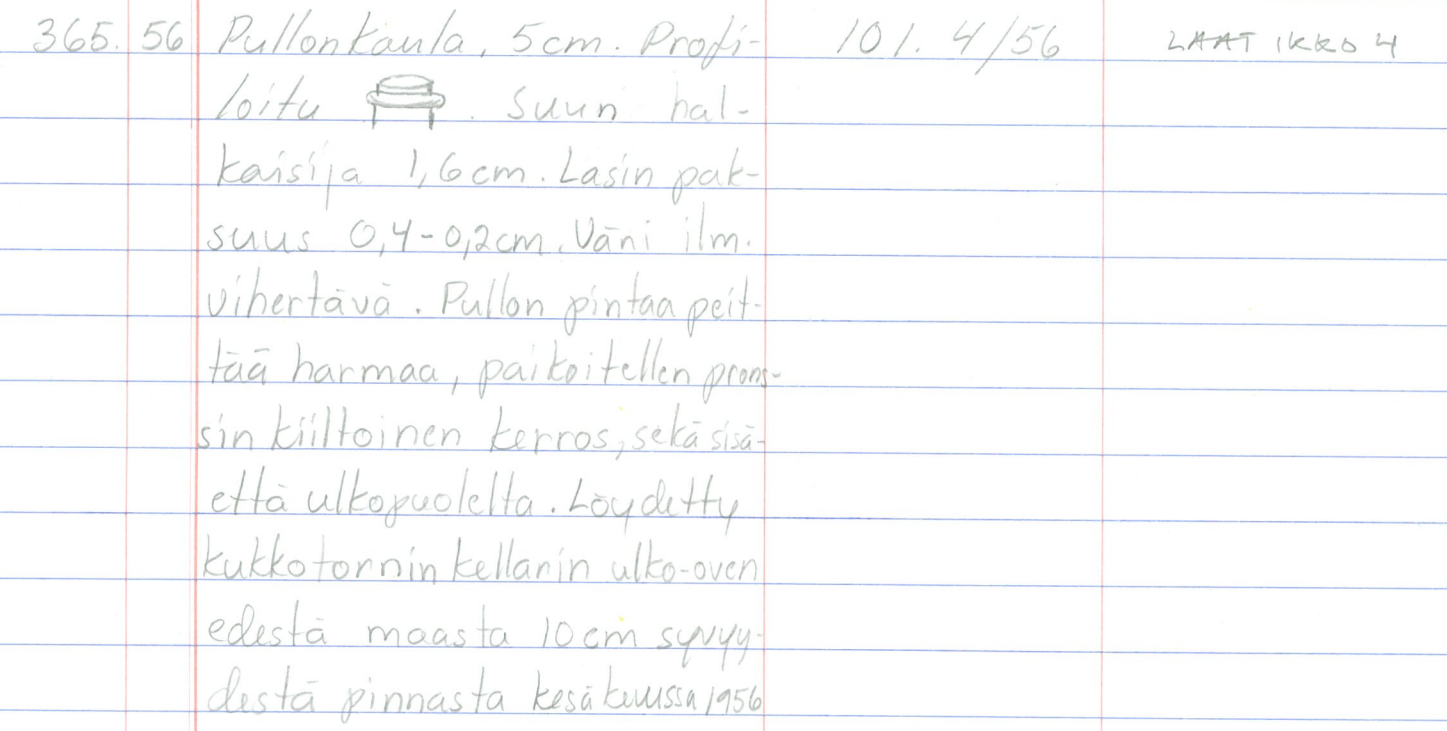 365. 56 Pullonkaula, 5cm. Profi- 101. 4/56 LAATIKKO 4
loitu . Suun hal-
kaisija 1,6cm. Lasin pak-
suus 0,4-0,2cm. Väri ilm.
vihertävä. Pullon pintaa peit-
tää harmaa, paikoitellen prons-
sin kiiltoinen kerros, sekä sisä-
että ulkopuolelta. Löydetty
kukkotornin kellarin ulko-oven
edestä maasta 10cm syvyy-
destä pinnasta kesäkuussa 1956